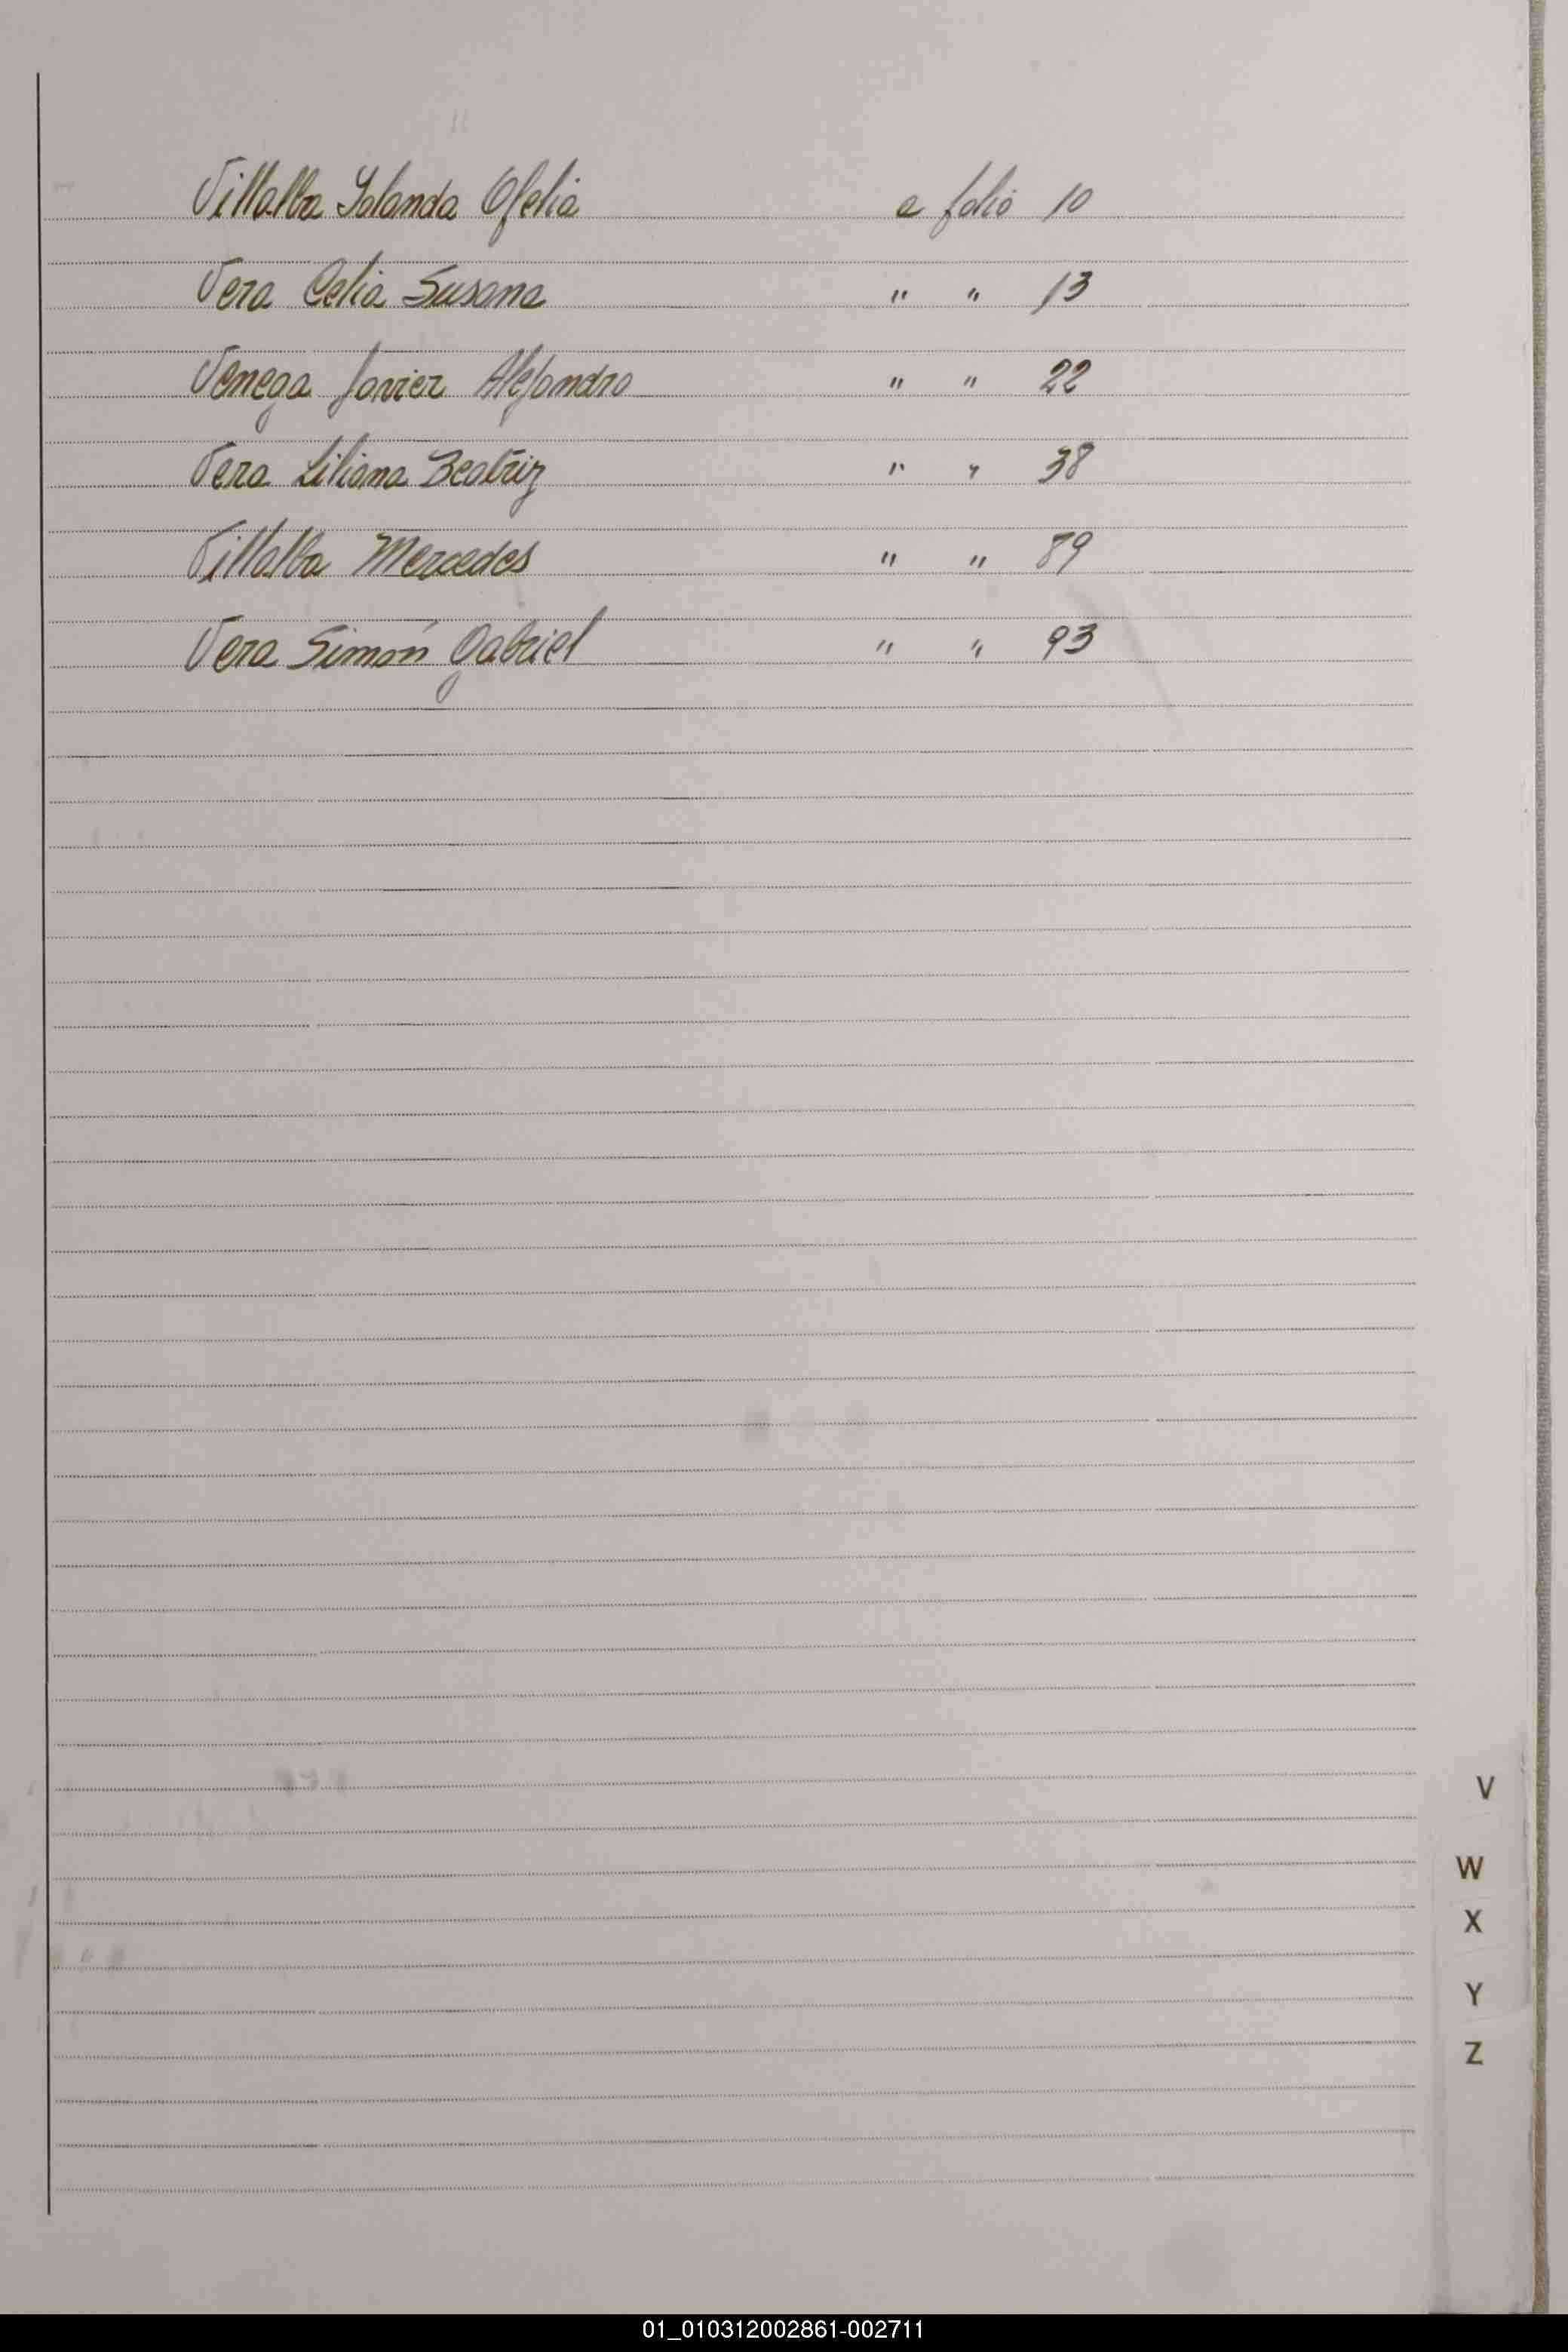 Villalba Yolanda Ofelia a folio 10
Vera Celia Susana " " 13
Venega Javier Alejandro " " 22
Vera Liliana Beatriz " " 38
Villalba Mercedes " " 89
Vera Simón Gabriel " " 93
V
W
X
Y
Z
01_010312002861-002711